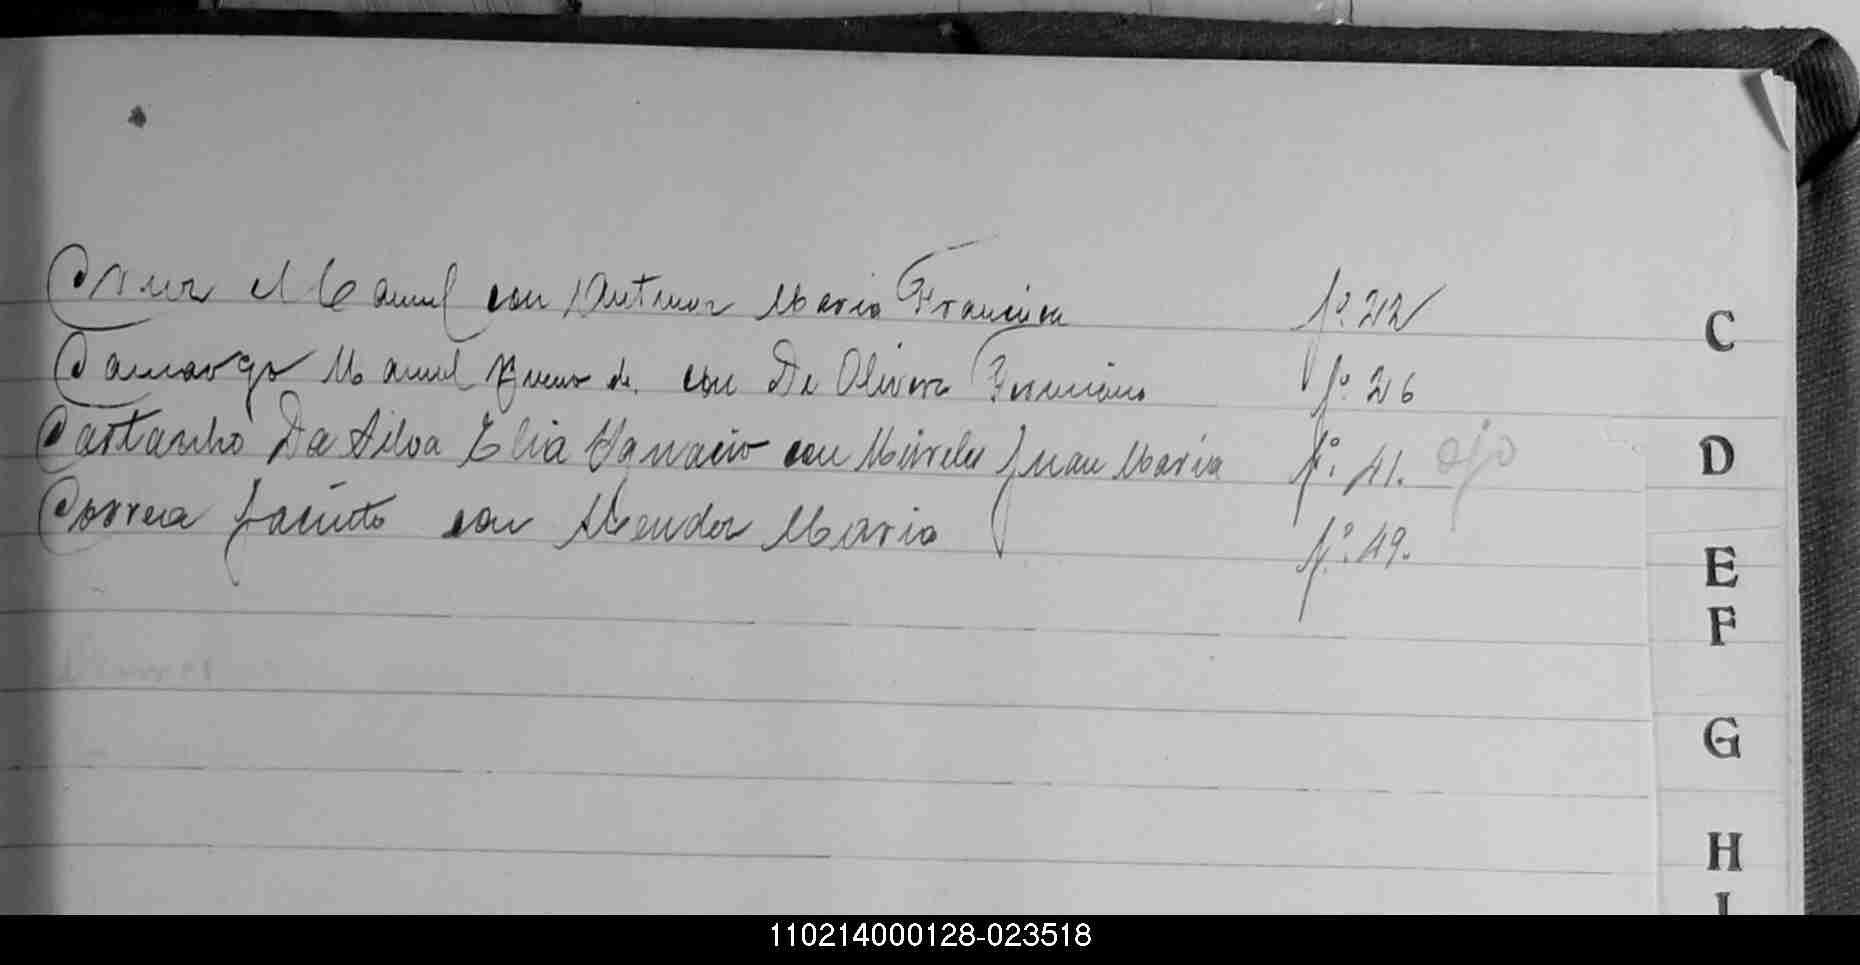 Cruz Manuel con Antunez Maria Francisca fº. 22
Camargo Manuel Bueno de. con De Olivera Feruciano fº 26
Castanho Da Silva Elia Ygnacio con Mireles Juan Maria fº. 41. ojo
Correa Jacinto con Mendez Maria fº. 49.
C
D
E
F
G
H
I
110214000128-023518